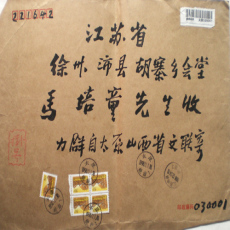 221642
江苏省
徐州沛县胡寨乡会堂
马培童先生收
力群自太原山西省文联寄
030001